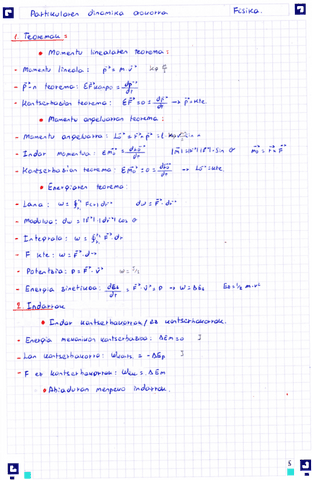 Partikularen dinamika orokorra Fisika.
1. Teoremak:
• Momentu linealaren teorema:
- Momentu lineala: p⃗ = m·v⃗ kg m/s
- p⃗-n teorema: ΣF⃗kanpo = dp⃗/dt
- Kontserbazion teorema: ΣF⃗ = 0 = dp⃗/dt → p⃗ = kte.
• Momentu angeluarraren teorema:
- Momentu angeluarra:
- Indar momentua:
- Kontserbazion teorema:
• Energiaren teorema:
- Lana: dw = F⃗·dr⃗
- Modulua: dw = |F⃗|·|dr⃗| cos
- Integrala:
- F kte:
- Potentzia: P = F⃗·v⃗
- Energia zinetikoa: → W = ΔEz Ez = 1/2 m·v²
2. Indarrak
• Indar kontserbakorrak / ez kontserbakorrak.
- Energia mekanikoen kontserbazioa: ΔEm = 0 J
- Lan kontserbakorra: = -ΔEp J
- F ez kontserbakorrak: = ΔEm
• Abiaduran menpeko indarrak.
5